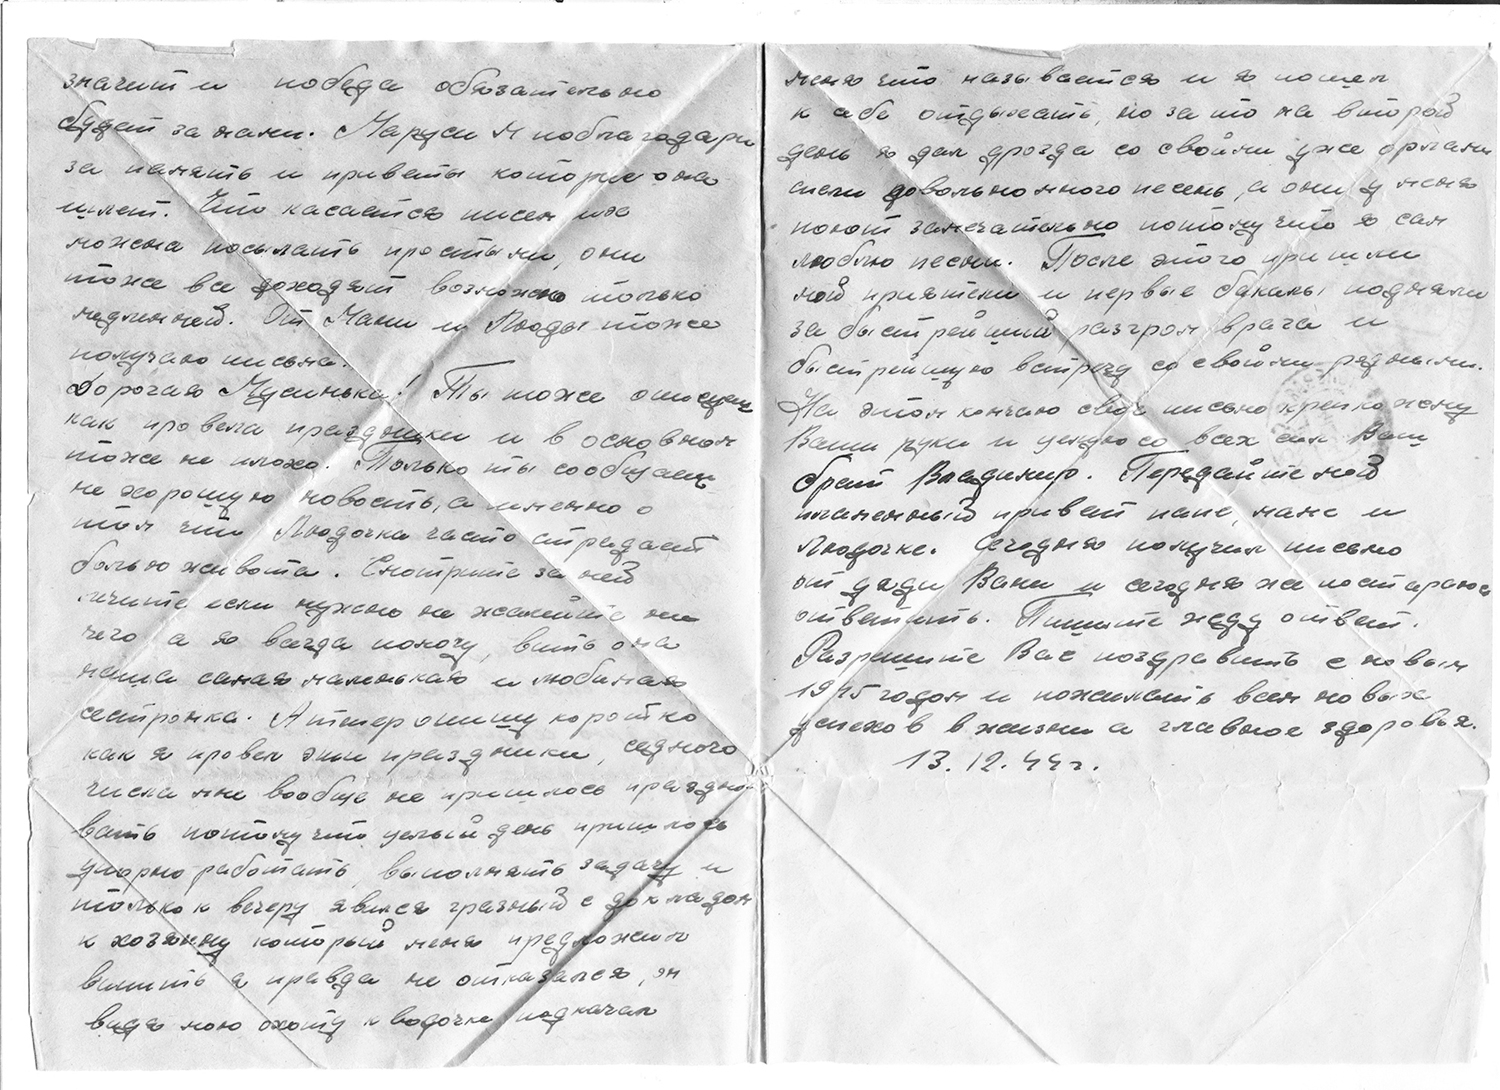 значит и победа обязательно
будет за нами. Марусю М поблагодари
за память и приветы которые она
шлет. Что касается писем их
можна посылать простыми, они
тоже все доходят возможно только
медленней. От Мани и Люды тоже
получаю письма.
Дорогая Мусинька! Ты тоже описуеш
как провела праздники и в основном
тоже не плохо. Только ты сообщаеш
не хорошую новость, а именно о
том что Людочка часто страдает
болью живота. Смотрите за ней
лечите если нужно не жалейте ни
чего а я всегда помочу, веть она
наша самая маленькая и любимая
сестронка. А тепер опишу коротко
как я провел эти праздники, седмого
числа мне вообще не пришлось праздно-
вать потому что целый день пришлось
упорно работать, выполнять задачу и
только к вечеру явился грязный с докладом
к хозяину который меня предложил
выпить я правда не отказался, он
видя мою охоту к водочке подкачал
меня что называется и я пошел
к себе отдыхать, но за то на второй
день я дал дрозда со своими уже орлами
спели довольно много песень, а они у меня
поют замечательно потому что я сам
люблю песни. После этого пришли
мой приятели и первые бакалы подняли
за быстрейший разгром врага и
быстрейшую встречу со своими родными.
На этом кончаю свое письмо крепко жму
Ваши руки и целую со всех сил Ваш
брат Владимир. Передайте мой
пламенный привет папе, маме и
Людочке. Сегодня получил письмо
от дяди Вани и сегодня же постараюс
ответить. Пишите жду ответ.
Разрешите Вас поздравить с новым
1945 годом и пожелать всем новых
успехов в жизни а главное здоровья.
13.12.44г.